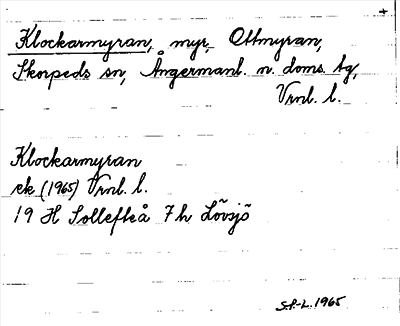 Klockarmyran, myr, Ottmyran,
Skorpeds sn, Ångermanl. n. doms. tg,
Vrnl. l.
Klockarmyran
ek (1965) Vrnl. l.
19 H Sollefteå 7 h Lövsjö
S.P.-L. 1965